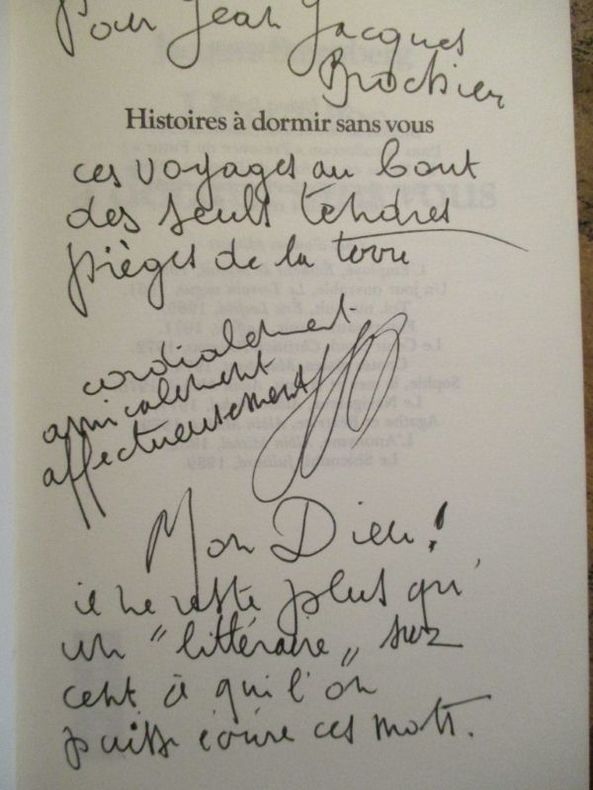 Pour Jean Jacques
Brochier
Histoires à dormir sans vous
ces voyages au bout
des seuls tendres
pièges de la terre
cordialement
amicalement
affectueusement
Mon Dieu !
il ne reste plus qu'
un "littéraire" sur
cent à qui l'on
puisse écrire ces mots.